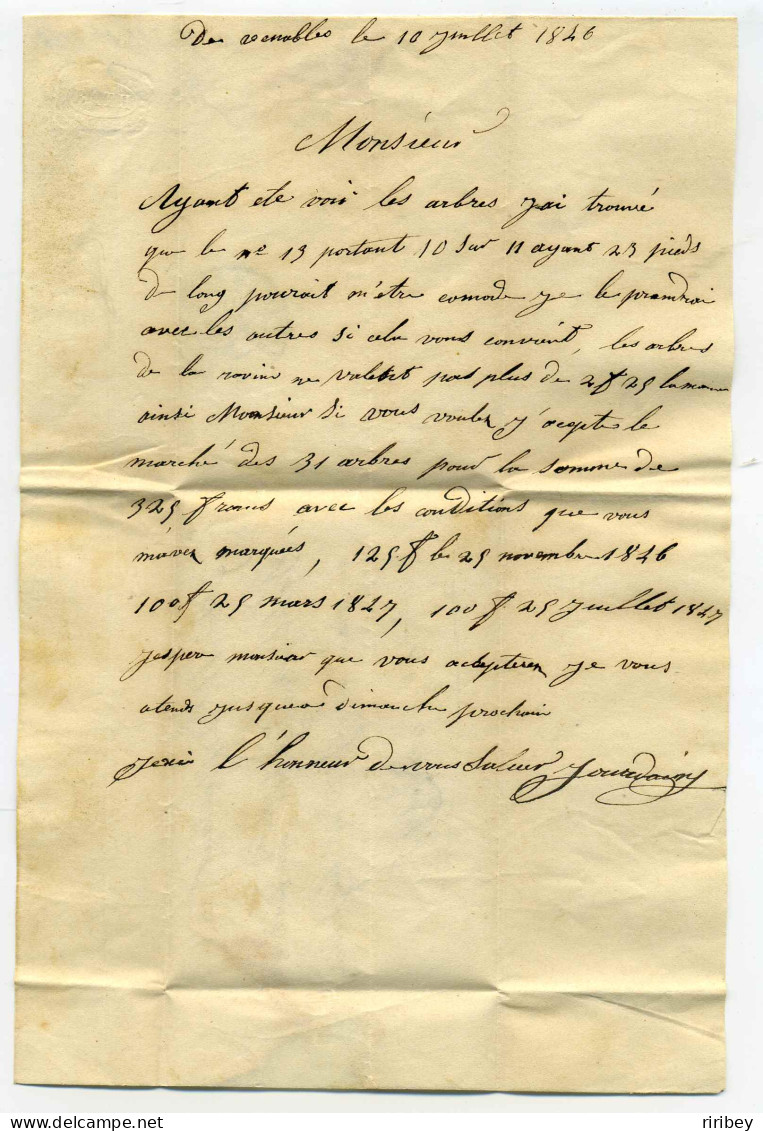 De venables le 10 Juillet 1846
Monsieur
Ayant ete voir les arbres j'ai trouvé
que le no 13 portant 10 sur 11 ayant 23 pieds
de long pouroit m'être comode je le prendrai
avec les autres si cela vous convient, les arbres
de la ravine ne valent pas plus de 2f 25
ainsi Monsieur si vous voulez j'acepte le
marché des 31 arbres pour la somme de
325 francs avec les conditions que vous
m'avez marquées, 125f le 25 novembre 1846
100f 25 mars 1847, 100f 25 Juillet 1847
Jesper monsieur que vous accepterez je vous
atends jusquea dimanche prochain
l'honneur de vous saluer Jourdain
riribey